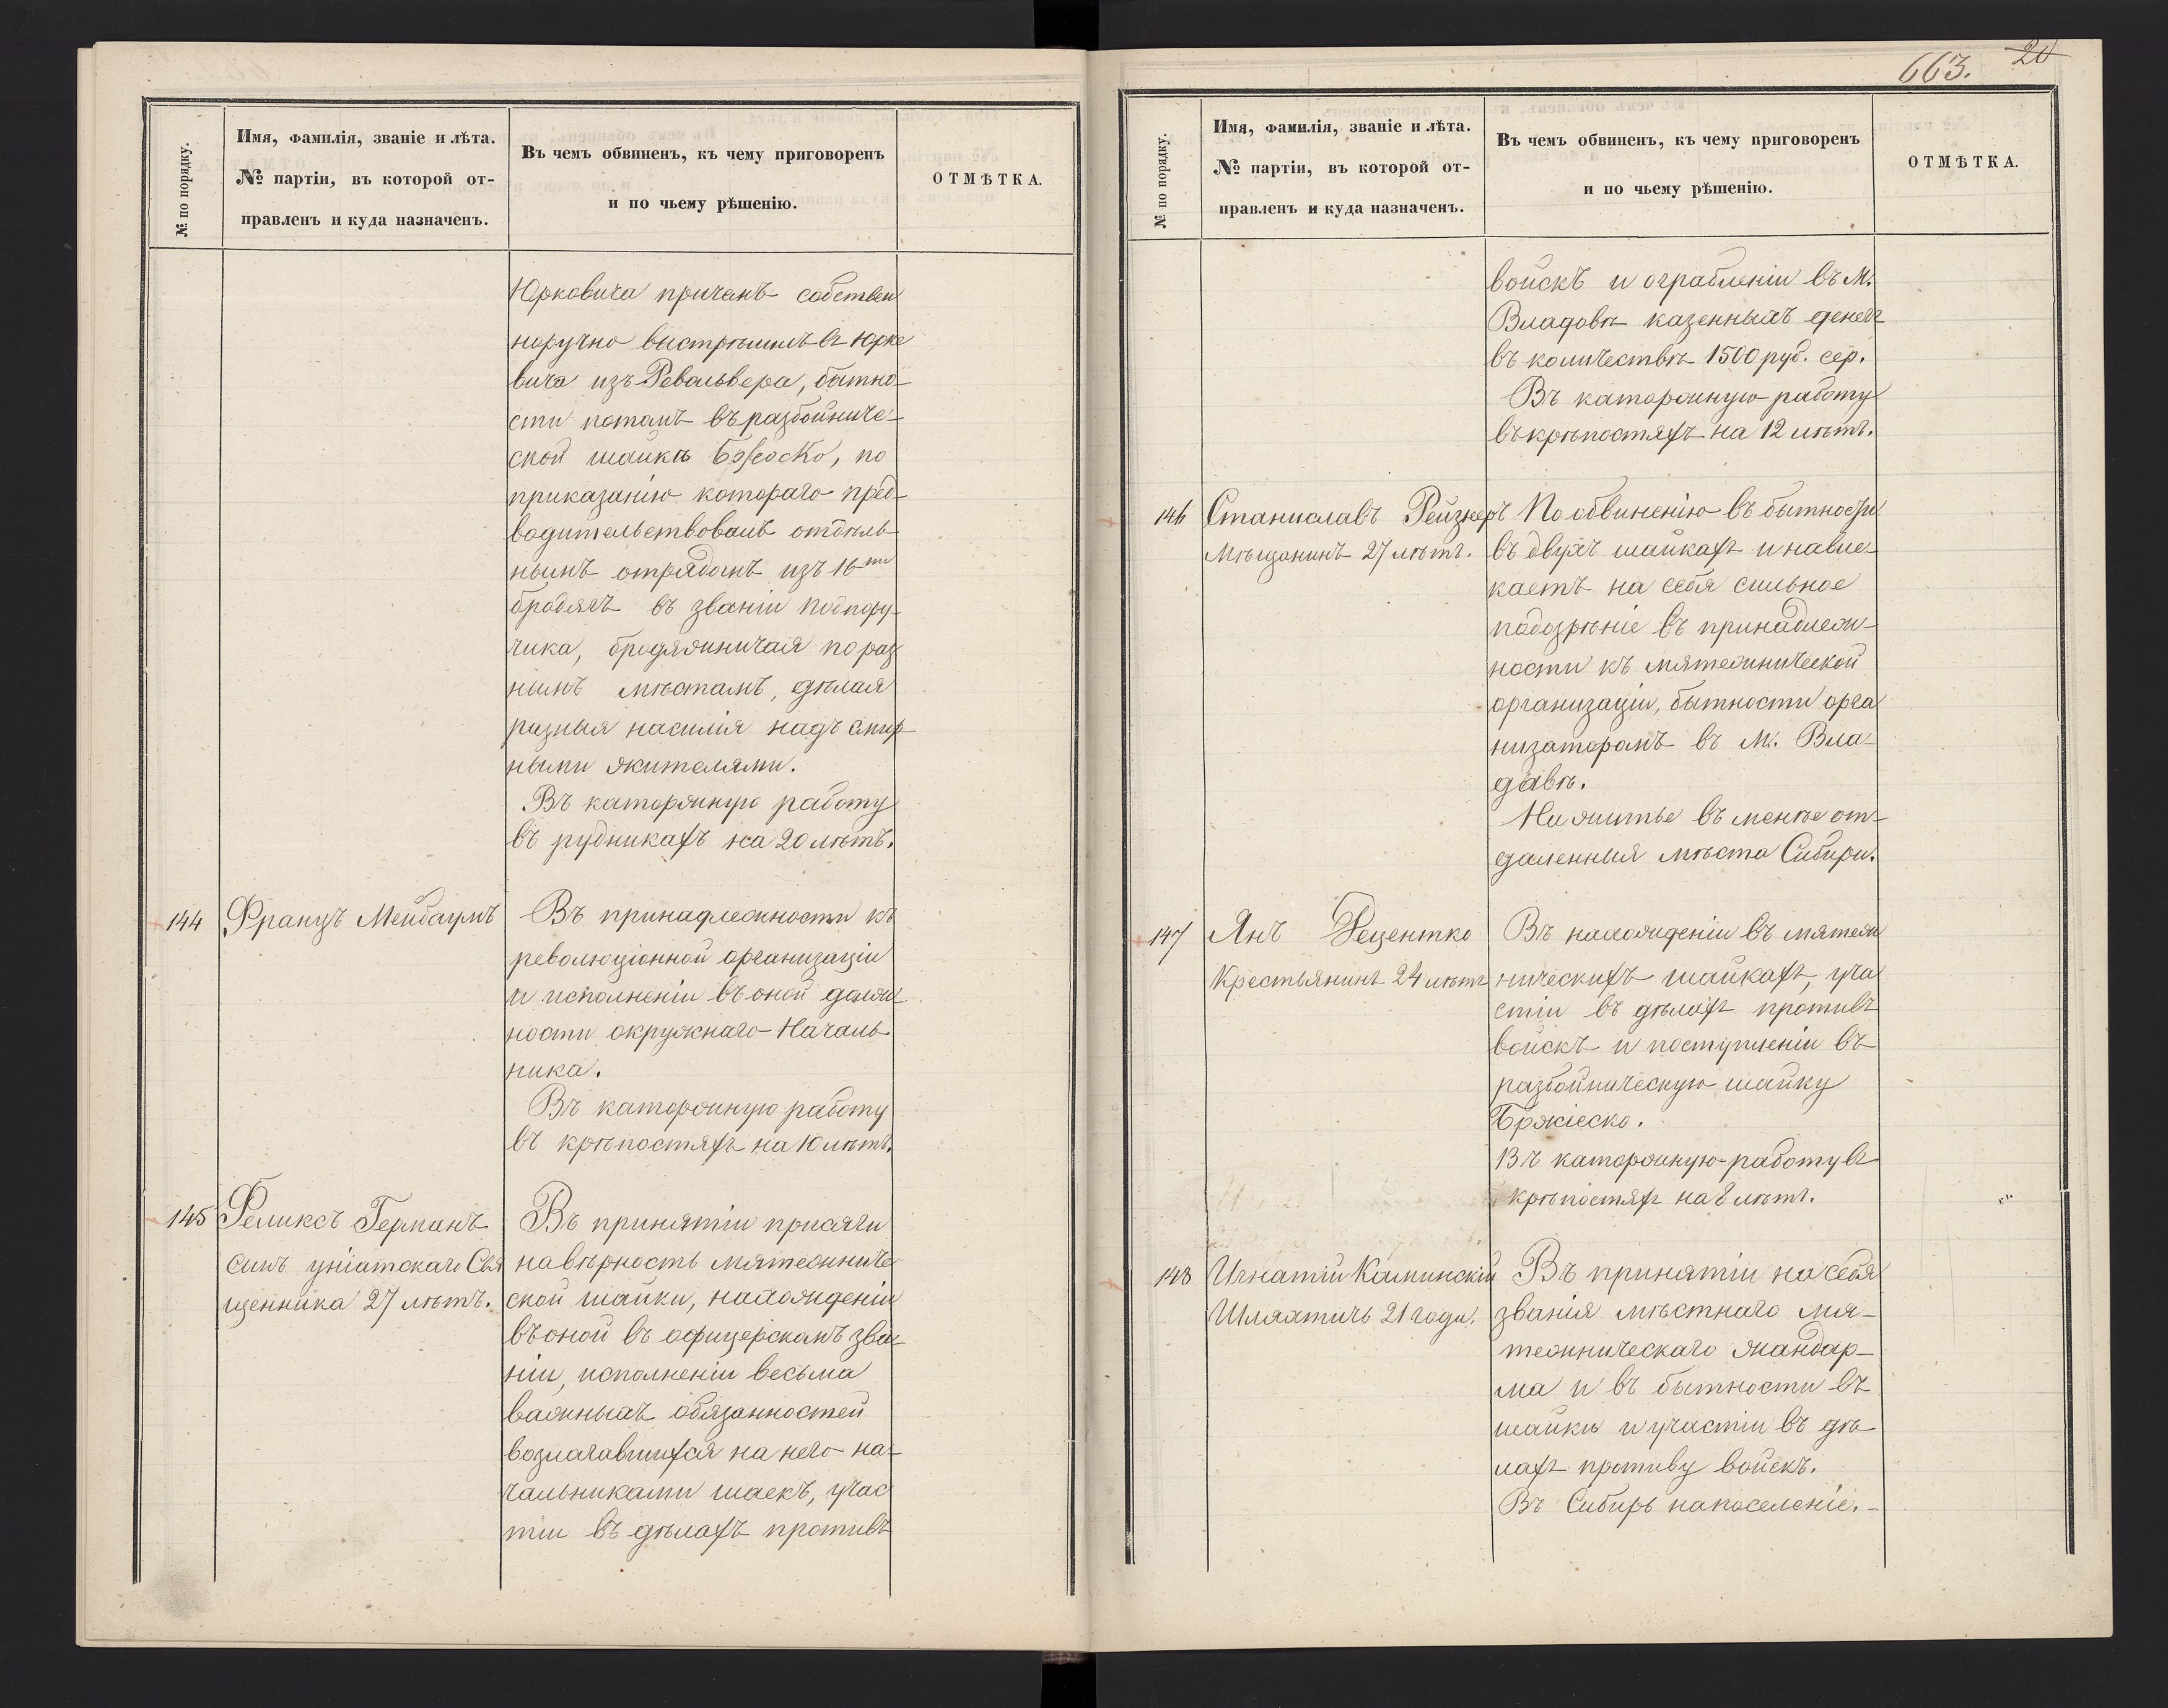 № по порядку.
Имя, фамилія, званіе и лѣта.
№ партіи, въ которой от-
правленъ и куда назначенъ.
Въ чемъ обвиненъ, къ чему приговоренъ
и по чьему рѣшенію.
ОТМѢТКА.
Юрковича причемъ собствен
норучно выстрѣлилъ въ Юрке
вича изъ Револьвера, бытно-
сти потомъ въ разбойниче-
ской шайкѣ по
приказанію котораго пред-
водительствовалъ отдѣль-
нымъ отрядомъ изъ 16ти
бродягъ въ званіи подпору-
чика, бродяжничая по раз
нымъ мѣстамъ, дѣлая
разныя насилія надъ смир-
ными жителями.
Въ каторжную работу
въ рудникахъ на 20 лѣтъ.
144 Францъ Мейбаумъ
Въ принадлежности къ
революціонной организаціи
и исполненіи въ оной долж-
ности окружнаго Началь-
ника.
Въ каторжную работу
въ крѣпостяхъ на 10 лѣтъ.
145 Феликсъ Германъ
сынъ уніатскаго Свя
щенника 27 лѣтъ.
Въ принятіи присяги
на вѣрность мятежниче
ской шайки, нахожденіи
въ оной въ офицерскомъ зва-
ніи, исполненіи весьма
важныхъ обязанностей
возлагавшихся на него на-
чальниками шаекъ, учас
тіи въ дѣлахъ противъ
663. 20
№ по порядку.
Имя, фамилія, званіе и лѣта.
№ партіи, въ которой от-
правленъ и куда назначенъ.
Въ чемъ обвиненъ, къ чему приговоренъ
и по чьему рѣшенію.
ОТМѢТКА.
войскъ и ограбленіи въ М.
Владовѣ казенныхъ денегъ
въ количествѣ 1500 руб. сер.
Въ каторжную работу
въ крѣпостяхъ на 12 лѣтъ.
146 Станиславъ Рейзнеръ
Мѣщанинъ 27 лѣтъ.
По обвиненію въ бытности
въ двухъ шайкахъ и навле-
каетъ на себя сильное
подозрѣніе въ принадлеж-
ности къ мятежнической
организаціи, бытности орга
низаторомъ въ М. Вла-
давѣ.
На житье въ менѣе от-
даленныя мѣста Сибири.
147 Янъ
Крестьянинъ 24 лѣтъ
Въ нахожденіи въ мятеж
ническихъ шайкахъ, уча
стіи въ дѣлахъ противъ
войскъ и поступленіи въ
разбойническую шайку
Бржіеско.
Въ каторжную работу въ
крѣпостяхъ на 8 лѣтъ.
148 Игнатій Каминскій
Шляхтичь 21 года.
Въ принятіи на себя
званія мѣстнаго мя-
тежническаго жандар-
ма и въ бытности въ
шайкѣ и участіи въ дѣ-
лахъ противу войскъ.
Въ Сибирь на поселеніе.-